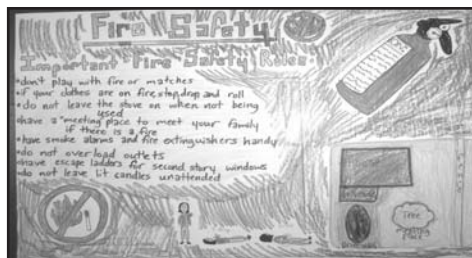 Fire Safety
Important Fire Safety Rules:
•don't play with fire or matches
•if your clothes are on fire, stop, drop and roll
•do not leave the stove on when not being
used
•have a "meeting place to meet your family
if there is a fire
•have smoke alarms and fire extinguishers handy
•do not overload outlets
•have escape ladders for second story windows
•do not leave lit candles unattended
Tree
meeting
place